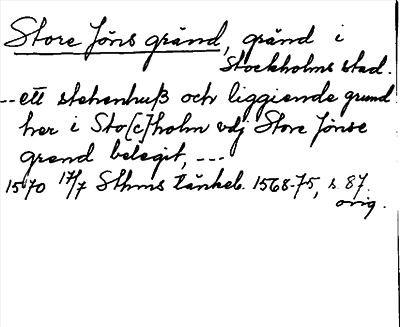 Store Jöns gränd, gränd i
Stockholms stad.
--- ett stehenhuß och liggiende grund
her i Sto[c]holm vdj Store Jönse
grend belegit, ---
1570 17/7 Sthms tänkeb. 1568-75, s. 87.
orig.